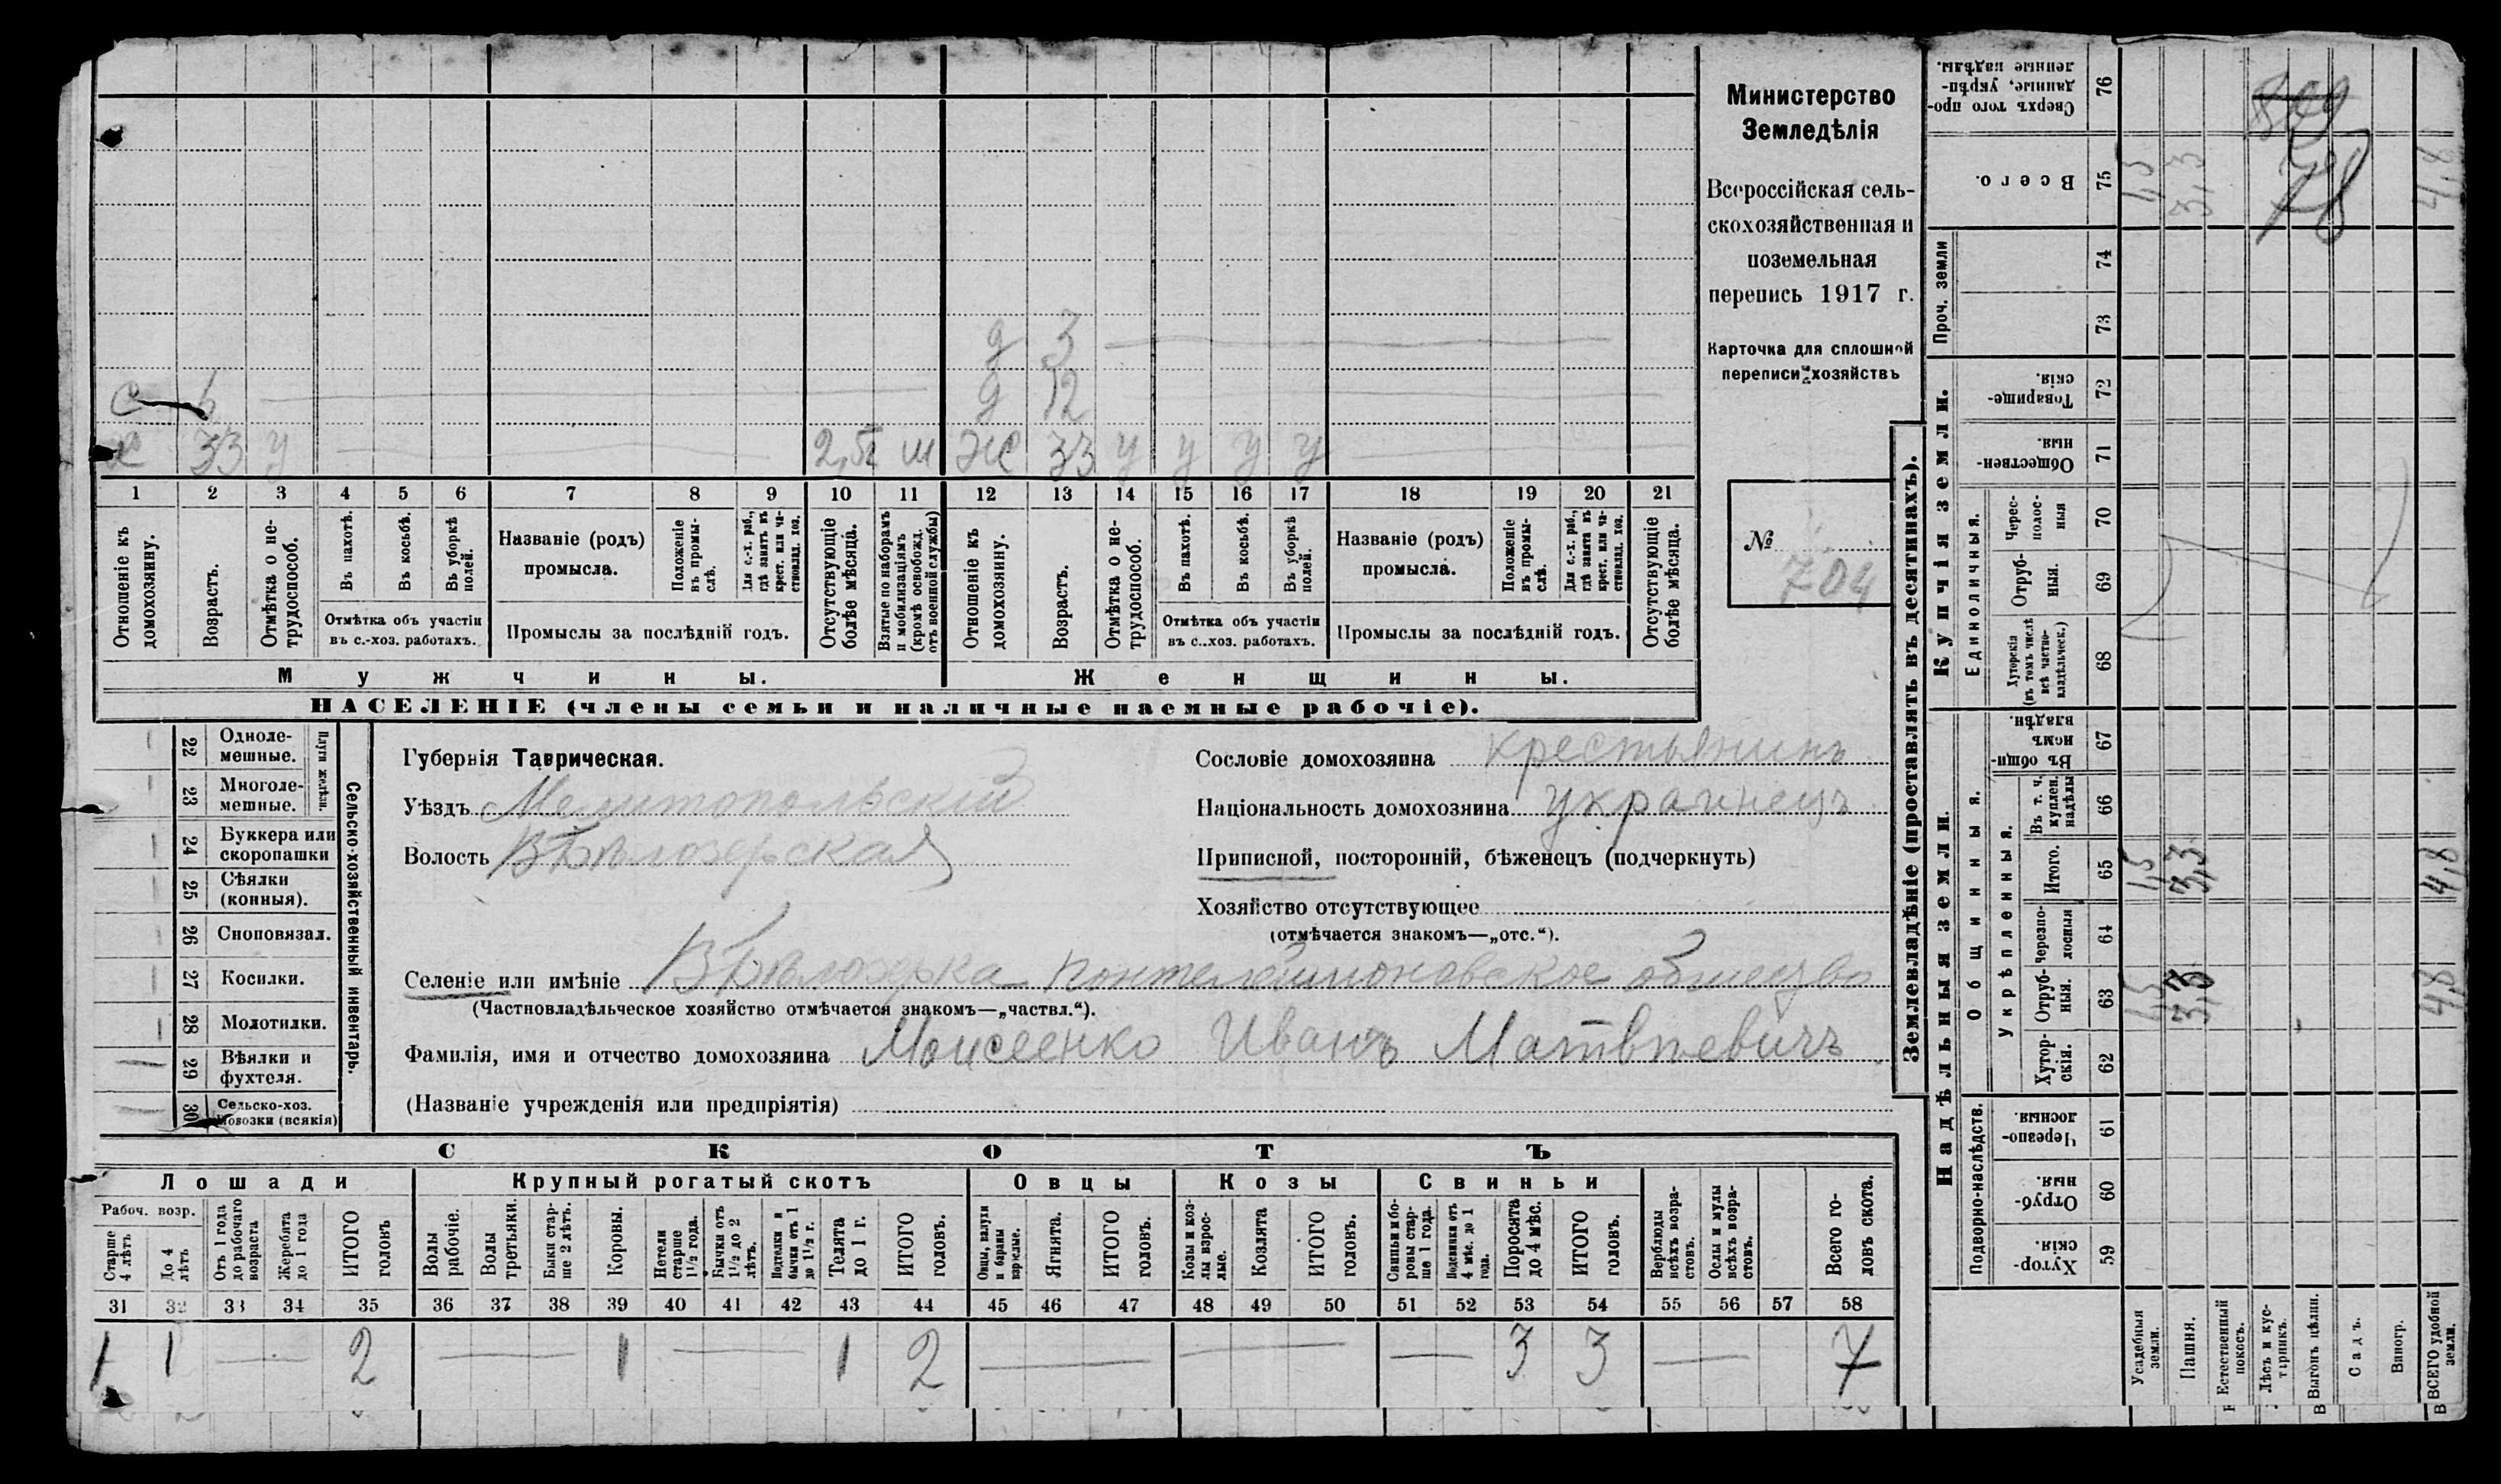 д 3
с 6 д 12
х 33 у 2,5 м ж 33 у у у у
1 2 3 4 5 6 7 8 9 10 11 12 13 14 15 16 17 18 19 20 21
Отношеніе къ домохозяину.
Возрастъ.
Отмѣтка о не-трудоспособ.
Въ пахотѣ.
Въ косьбѣ.
Въ уборкѣ полей.
Отмѣтка объ участіи
въ с.-хоз. работахъ.
Названіе (родъ)
промысла.
Положеніе въ промы-слѣ.
Для с.-х. раб., гдѣ занятъ въ крест. или ча-стновлад. хоз.
Промыслы за послѣдній годъ.
Отсутствующіе болѣе мѣсяца.
Взятые по наборамъ и мобилизаціямъ (кромѣ освобожд. отъ военной службы)
Отношеніе къ домохозяину.
Возрастъ.
Отмѣтка о не-трудоспособ.
Въ пахотѣ.
Въ косьбѣ.
Въ уборкѣ полей.
Отмѣтка объ участіи
въ с..хоз. работахъ.
Названіе (родъ)
промысла.
Положеніе въ промы-слѣ.
Для с.-х. раб., гдѣ занята въ крест. или ча-стновлад. хоз.
Промыслы за послѣдній годъ.
Отсутствующіе болѣе мѣсяца.
Мужчины. Женщины.
НАСЕЛЕНІЕ (члены семьи и наличные наемные рабочіе).
Министерство
Земледѣлія
Всероссійская сель-
скохозяйственная и
поземельная
перепись 1917 г.
Карточка для сплошной
переписи хозяйствъ
№
704
Сельско-хозяйственный инвентарь.
Плуги желѣзн.
22 Одноле-
мешные.
23 Многоле-
мешные.
24 Буккера или
скоропашки
25 Сѣялки
(конныя).
26 Сноповязал.
27 Косилки.
28 Молотилки.
29 Вѣялки и
фухтеля.
30 Сельско-хоз.
повозки (всякія)
Губернія Таврическая.
Уѣздъ Мелитопольскій
Волость В Бѣлозерская
Сословіе домохозяина крестьянинъ
Національность домохозяина украинецъ
Приписной, посторонній, бѣженецъ (подчеркнуть)
Хозяйство отсутствующее
(отмѣчается знакомъ—„отс.“).
Селеніе или имѣніе В Бѣлозерка
(Частновладѣльческое хозяйство отмѣчается знакомъ—„частвл.“).
Фамилія, имя и отчество домохозяина Моисеенко Иванъ Матвѣевичъ
(Названіе учрежденія или предпріятія)
СКОТЪ
Лошади Крупный рогатый скотъ Овцы Козы Свиньи
Рабоч. возр.
Старше 4 лѣтъ
До 4 лѣтъ
Отъ 1 года до рабочаго возраста
Жеребята до 1 года
ИТОГО головъ
Волы рабочіе.
Волы третьяки.
Быки стар-ше 2 лѣтъ.
Коровы.
Нетели старше 1 1/2 года.
Бычки отъ 1 1/2 до 2 лѣтъ.
Подтелки и бычки отъ 1 до 1 1/2 г.
Телята до 1 г.
ИТОГО головъ.
Овцы, валухи и бараны взрослые.
Ягнята.
ИТОГО головъ.
Козы и коз-лы взрос-лые.
Козлята
ИТОГО головъ.
Свиньи и бо-ровы стар-ше 1 года.
Подсвинки отъ 4 мѣс. до 1 года.
Поросята до 4 мѣс.
ИТОГО головъ.
Верблюды всѣхъ возра-стовъ.
Ослы и мулы всѣхъ возра-стовъ.
Всего го-ловъ скота.
31 32 33 34 35 36 37 38 39 40 41 42 43 44 45 46 47 48 49 50 51 52 53 54 55 56 57 58
1 1 — 2 — 1 — 1 2 — — — 3 3 — 7
Землевладѣніе (проставлять въ десятинахъ).
Надѣльныя земли. Купчія земли. Проч. земли
Подворно-наслѣдств.
Общинныя.
Укрѣпленныя.
Единоличныя.
Хутор-скія. 59
Отруб-ныя. 60
Черезпо-лосныя. 61
Хутор-скія. 62
Отруб-ныя. 63 1,5 3,3 4,8
Черезпо-лосныя 64
Итого. 65 1,5 3,3 4,8
Въ т. ч. куплен. надѣлы 66
Въ общин-номъ владѣн. 67
Хуторскія (въ томъ числѣ всѣ частно-владѣльческ.) 68
Отруб-ныя. 69
Черес-полос-ныя 70
Обществен-ныя. 71
Товарище-скія. 72
73
74
Всего. 75 1,5 3,3 4,8
Сверхъ того про-данные, укрѣп-ленные надѣлы. 76
809
78
Усадебныя земли.
Пашня.
Естественный покосъ.
Лѣсъ и кус-тарникъ.
Выгонъ цѣлин.
Садъ.
Виногр.
ВСЕГО удобной земли.